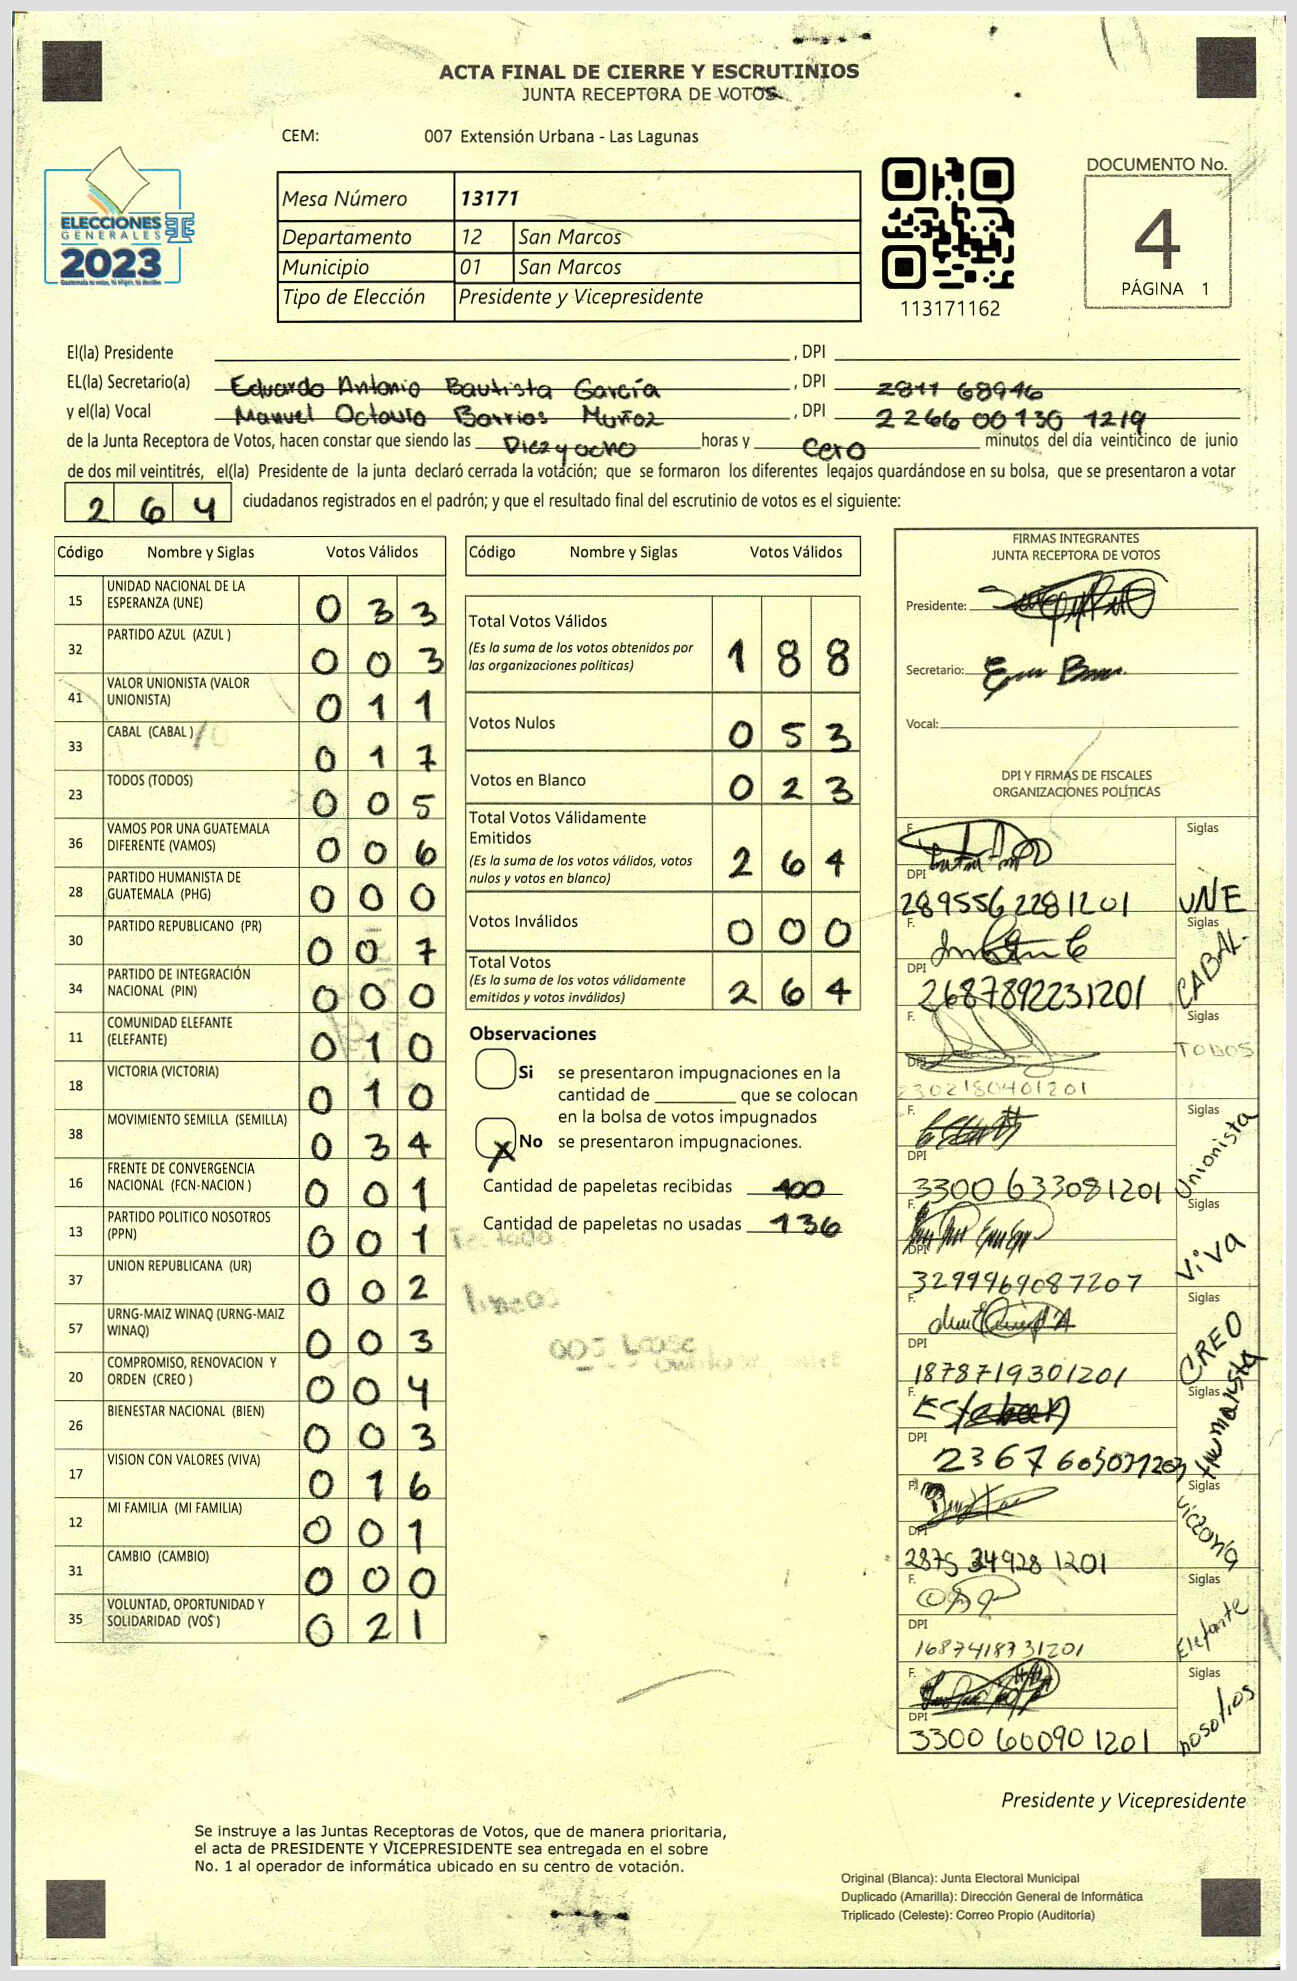 ACTA FINAL DE CIERRE Y ESCRUTINIOS
JUNTA RECEPTORA DE VOTOS
CEM: 007 Extensión Urbana - Las Lagunas
ELECCIONES
GENERALES
2023
Mesa Número 13171
Departamento 12 San Marcos
Municipio 01 San Marcos
Tipo de Elección Presidente y Vicepresidente
113171162
DOCUMENTO No.
4
PÁGINA 1
El(la) Presidente , DPI
EL(la) Secretario(a) Eduardo Antonio Bautista García , DPI
y el(la) Vocal Manuel Octavio Barrios Muñoz , DPI 2266 00130 1219
de la Junta Receptora de Votos, hacen constar que siendo las Diezyocho horas y Cero minutos del día veinticinco de junio
de dos mil veintitrés, el(la) Presidente de la junta declaró cerrada la votación; que se formaron los diferentes legajos guardándose en su bolsa, que se presentaron a votar
264 ciudadanos registrados en el padrón; y que el resultado final del escrutinio de votos es el siguiente:
Código Nombre y Siglas Votos Válidos
15 UNIDAD NACIONAL DE LA ESPERANZA (UNE) 033
32 PARTIDO AZUL (AZUL ) 003
41 VALOR UNIONISTA (VALOR UNIONISTA) 011
33 CABAL (CABAL ) 017
23 TODOS (TODOS) 005
36 VAMOS POR UNA GUATEMALA DIFERENTE (VAMOS) 006
28 PARTIDO HUMANISTA DE GUATEMALA (PHG) 000
30 PARTIDO REPUBLICANO (PR) 007
34 PARTIDO DE INTEGRACIÓN NACIONAL (PIN) 000
11 COMUNIDAD ELEFANTE (ELEFANTE) 010
18 VICTORIA (VICTORIA) 010
38 MOVIMIENTO SEMILLA (SEMILLA) 034
16 FRENTE DE CONVERGENCIA NACIONAL (FCN-NACION ) 001
13 PARTIDO POLITICO NOSOTROS (PPN) 001
37 UNION REPUBLICANA (UR) 002
57 URNG-MAIZ WINAQ (URNG-MAIZ WINAQ) 003
20 COMPROMISO, RENOVACION Y ORDEN (CREO ) 004
26 BIENESTAR NACIONAL (BIEN) 003
17 VISION CON VALORES (VIVA) 016
12 MI FAMILIA (MI FAMILIA) 001
31 CAMBIO (CAMBIO) 000
35 VOLUNTAD, OPORTUNIDAD Y SOLIDARIDAD (VOS ) 021
Código Nombre y Siglas Votos Válidos
Total Votos Válidos 188
(Es la suma de los votos obtenidos por
las organizaciones políticas)
Votos Nulos 053
Votos en Blanco 023
Total Votos Válidamente
Emitidos 264
(Es la suma de los votos válidos, votos
nulos y votos en blanco)
Votos Inválidos 000
Total Votos 264
(Es la suma de los votos válidamente
emitidos y votos inválidos)
Observaciones
Si se presentaron impugnaciones en la
cantidad de ________ que se colocan
en la bolsa de votos impugnados
X No se presentaron impugnaciones.
Cantidad de papeletas recibidas 400
Cantidad de papeletas no usadas 136
FIRMAS INTEGRANTES
JUNTA RECEPTORA DE VOTOS
Presidente:
Secretario:
Vocal:
DPI Y FIRMAS DE FISCALES
ORGANIZACIONES POLÍTICAS
F. Siglas
DPI 2895562281201 UNE
F. Siglas
DPI 2687892231201 CABAL
F. Siglas
DPI 2302180401201 TODOS
F. Siglas
DPI 3300 633081201 Unionista
F. Siglas
DPI 3299969087207 VIVA
F. Siglas
DPI 1878719301201 CREO
F. Siglas
DPI Humanista
F. Siglas
DPI 2875 34928 1201 Victoria
F. Siglas
DPI 1687418731201 Elefante
F. Siglas
DPI 3300 60090 1201 nosotros
Presidente y Vicepresidente
Se instruye a las Juntas Receptoras de Votos, que de manera prioritaria,
el acta de PRESIDENTE Y VICEPRESIDENTE sea entregada en el sobre
No. 1 al operador de informática ubicado en su centro de votación.
Original (Blanca): Junta Electoral Municipal
Duplicado (Amarilla): Dirección General de Informática
Triplicado (Celeste): Correo Propio (Auditoría)